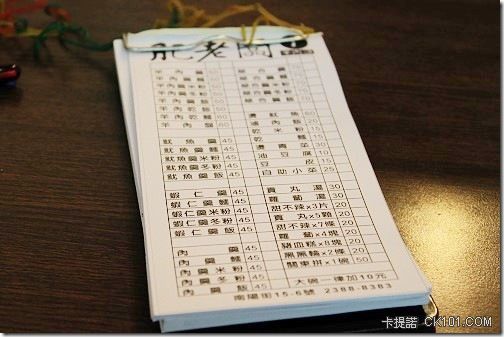 老闆
羊肉羹
羊肉羹麵
羊肉羹米粉
羊肉羹冬粉
羊肉羹飯
魷魚羹 45
魷魚羹麵 45
魷魚羹米粉 45
魷魚羹冬粉 45
魷魚羹飯 45
蝦仁羹 45
蝦仁羹麵 45
蝦仁羹米粉 45
蝦仁羹冬粉 45
蝦仁羹飯 45
肉羹 45
肉羹麵 45
肉羹米粉 45
肉羹冬粉 45
肉羹飯 45
綜合羹
綜合羹麵
綜合羹米粉
綜合羹冬粉
綜合羹飯
燙魷魚 60
滷肉飯
乾米粉 15
燙青菜 30
油豆腐 10
豆皮 15
自助小菜 25
貢丸湯 30
蘿蔔湯 30
甜不辣x3片 20
貢丸x5顆 20
甜不辣x7條 20
蘿蔔x4塊 20
豬血糕x8塊 20
黑輪x2條 20
關東拼x1碗 50
大碗一律加10元
南陽街15-6號 2388-8383
卡提諾 CK101.COM